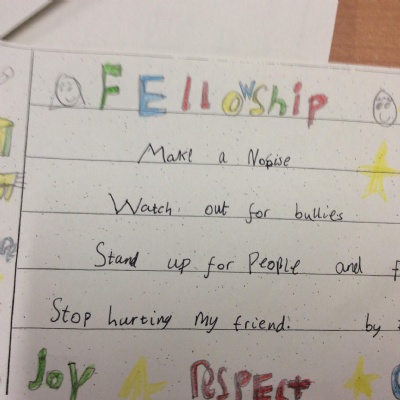 FELLOWShip
Make a Nopise
Watch out for bullies
Stand up for People and
Stop hurting my friend. by
Joy RESPECT